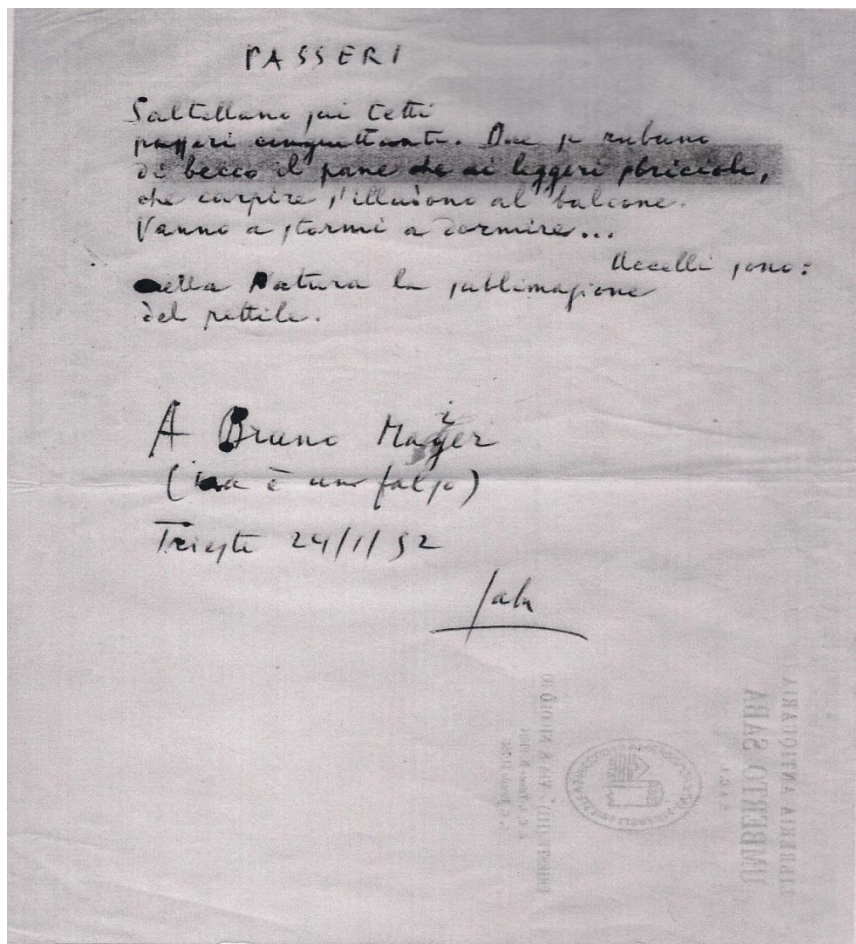 PASSERI
Saltellano sui tetti
passeri cinguettanti. Due si rubano
di becco il pane che ai leggeri sbricioli,
che carpire s'illudono al balcone.
Vanno a stormi a dormire...
Uccelli sono:
nella Natura la sublimazione
del rettile.
A Bruno Maier
(ma è un falso)
Trieste 24/1/52
Saba
LIBRERIA ANTIQUARIA
UMBERTO SABA
VIA S. NICOLÒ 30